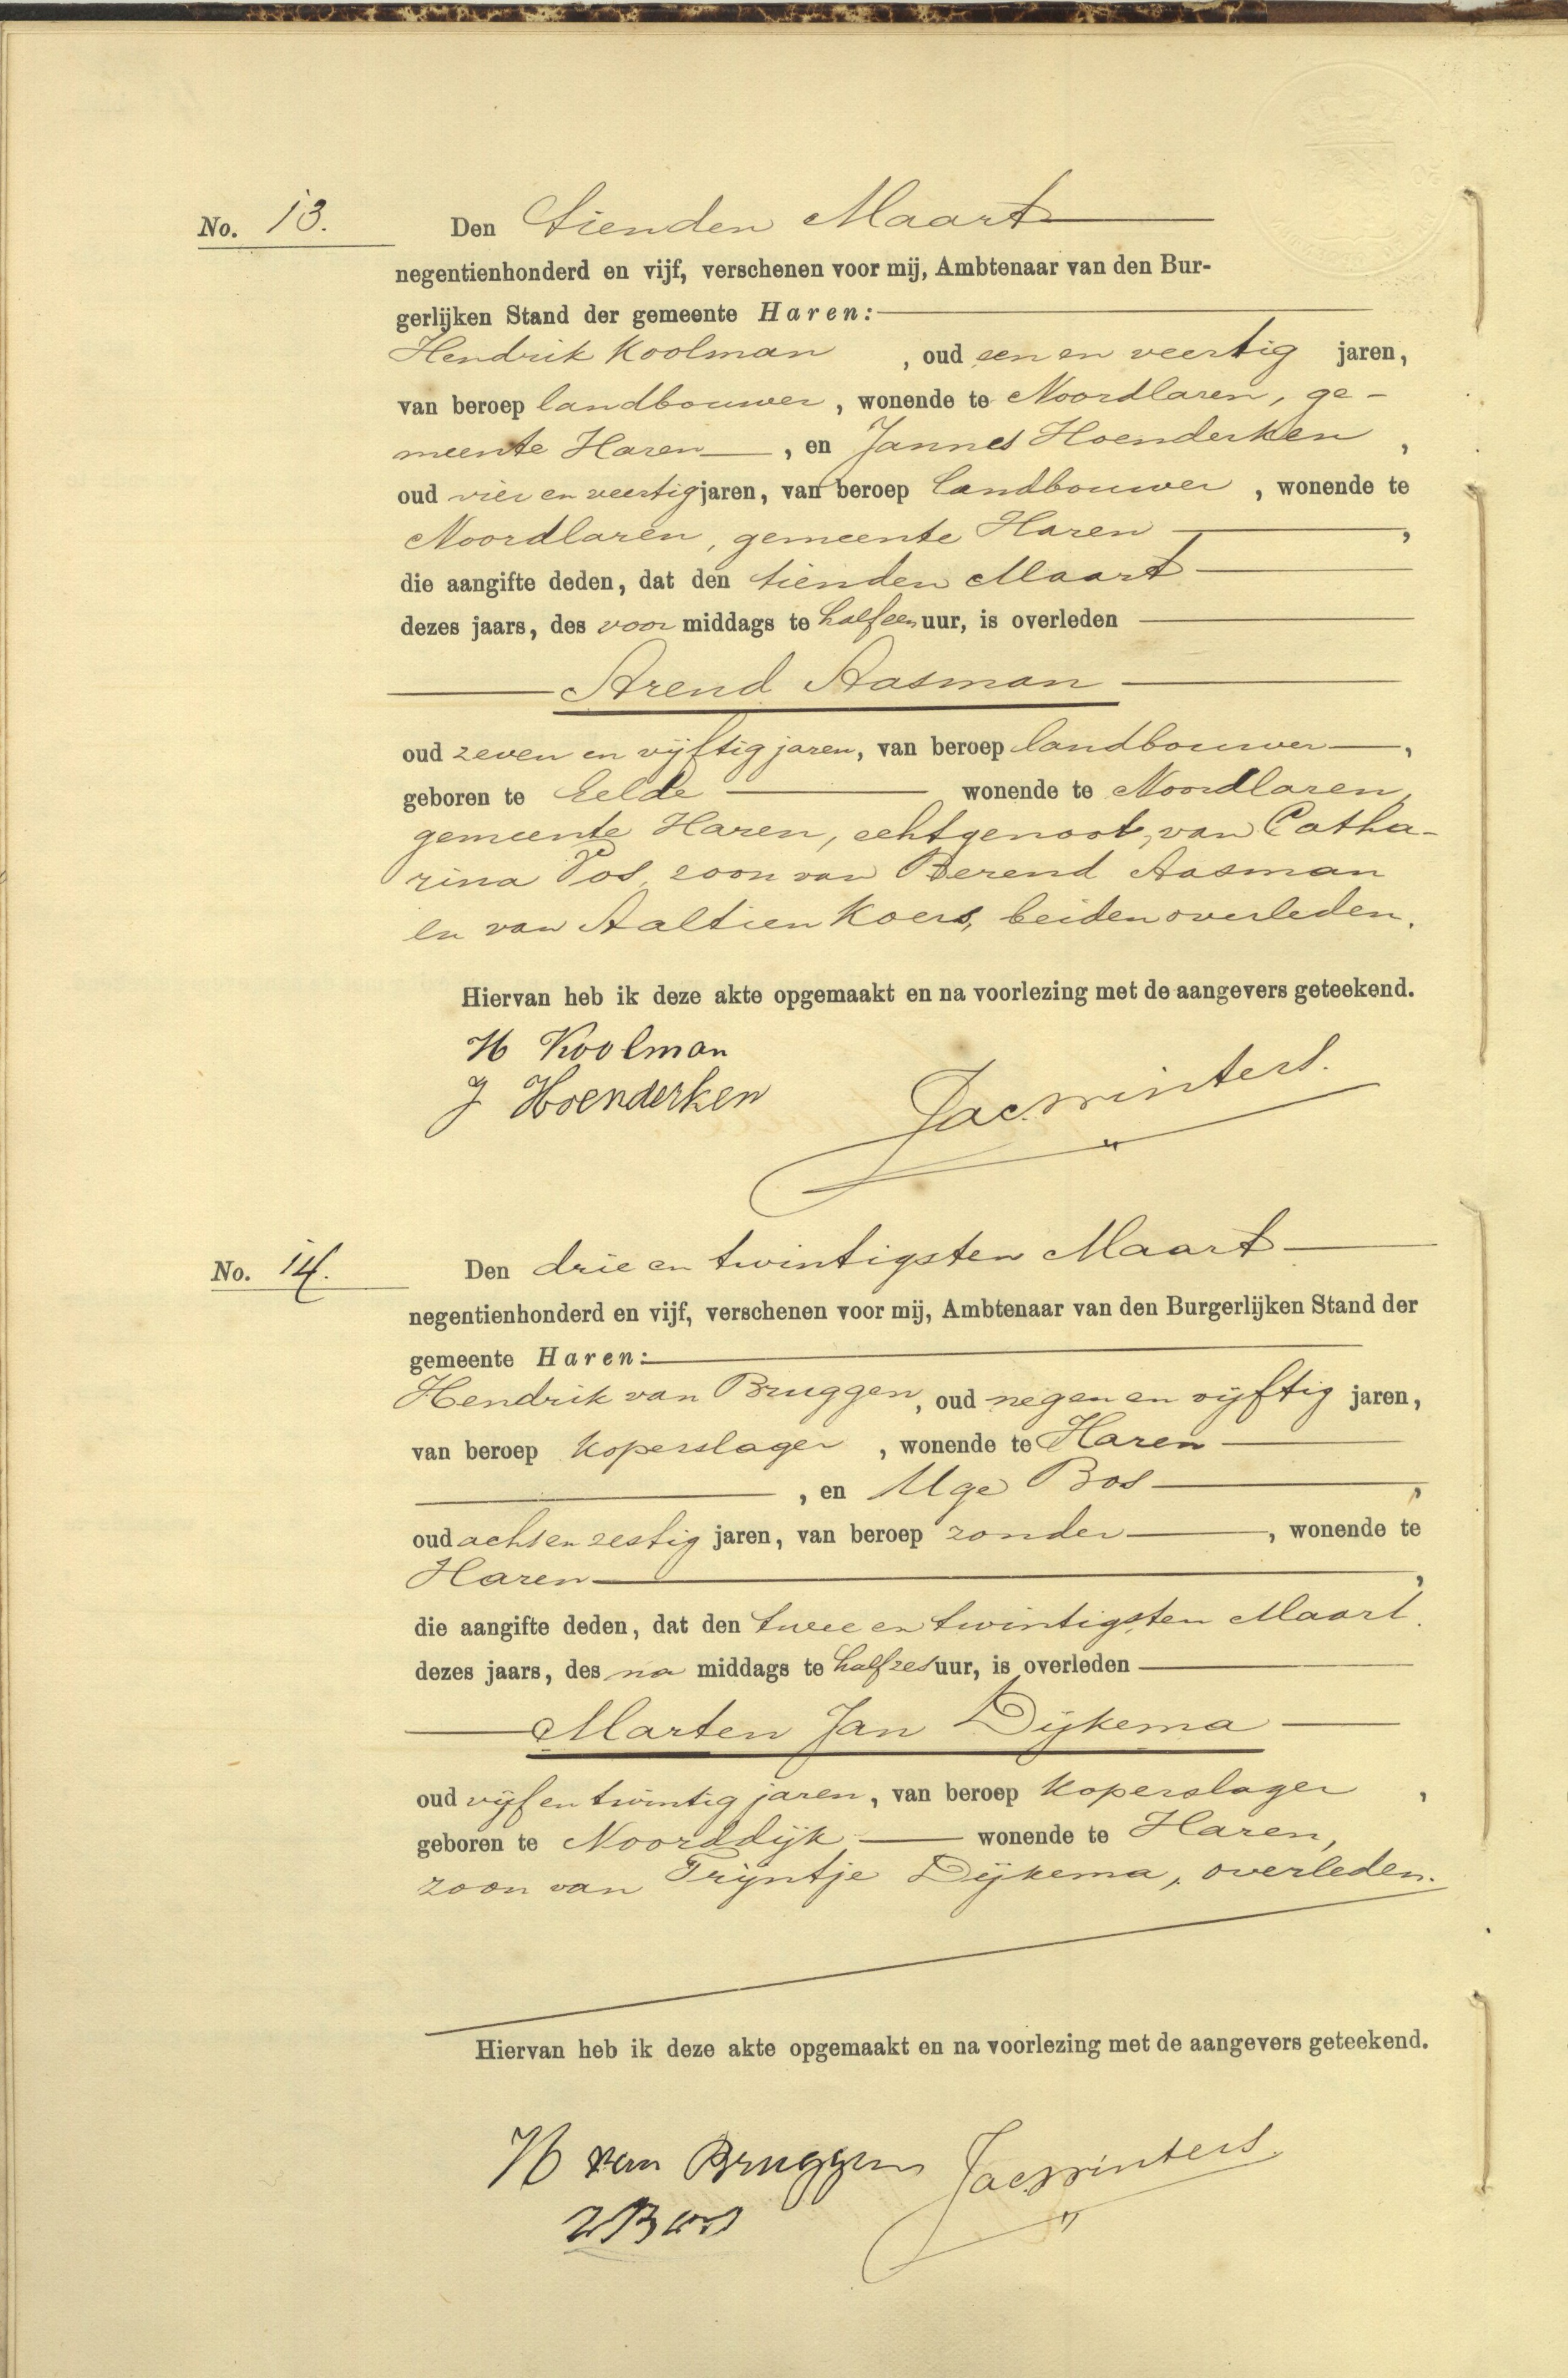 No. 13. Den tienden Maart
negentienhonderd en vijf, verschenen voor mij, Ambtenaar van den Bur-
gerlijken Stand der gemeente Haren:
Hendrik Koolman, oud een en veertig jaren,
van beroep landbouwer, wonende te Noordlaren, ge-
meente Haren, en Jannes Hoenderken,
oud vier en veertig jaren, van beroep landbouwer, wonende te
Noordlaren, gemeente Haren,
die aangifte deden, dat den tienden Maart
dezes jaars, des voor middags te half een uur, is overleden
Arend Aasman
oud zeven en vijftig jaren, van beroep landbouwer,
geboren te Eelde wonende te Noordlaren,
gemeente Haren, echtgenoot van Catha-
rina Vos, zoon van Berend Aasman
en van Aaltien Koers, beiden overleden.
Hiervan heb ik deze akte opgemaakt en na voorlezing met de aangevers geteekend.
H Koolman
J Hoenderken
Jac. Winters.
No. 14. Den drie en twintigsten Maart
negentienhonderd en vijf, verschenen voor mij, Ambtenaar van den Burgerlijken Stand der
gemeente Haren:
Hendrik van Bruggen, oud negen en vijftig jaren,
van beroep koperslager, wonende te Haren
, en Uge Bos,
oud acht en zestig jaren, van beroep zonder, wonende te
Haren,
die aangifte deden, dat den twee en twintigsten Maart
dezes jaars, des na middags te half zes uur, is overleden
Marten Jan Dijkema
oud vijf en twintig jaren, van beroep koperslager,
geboren te Noorddijk wonende te Haren,
zoon van Trijntje Dijkema, overleden.
Hiervan heb ik deze akte opgemaakt en na voorlezing met de aangevers geteekend.
H van Bruggen
Jac. Winters
U Bos